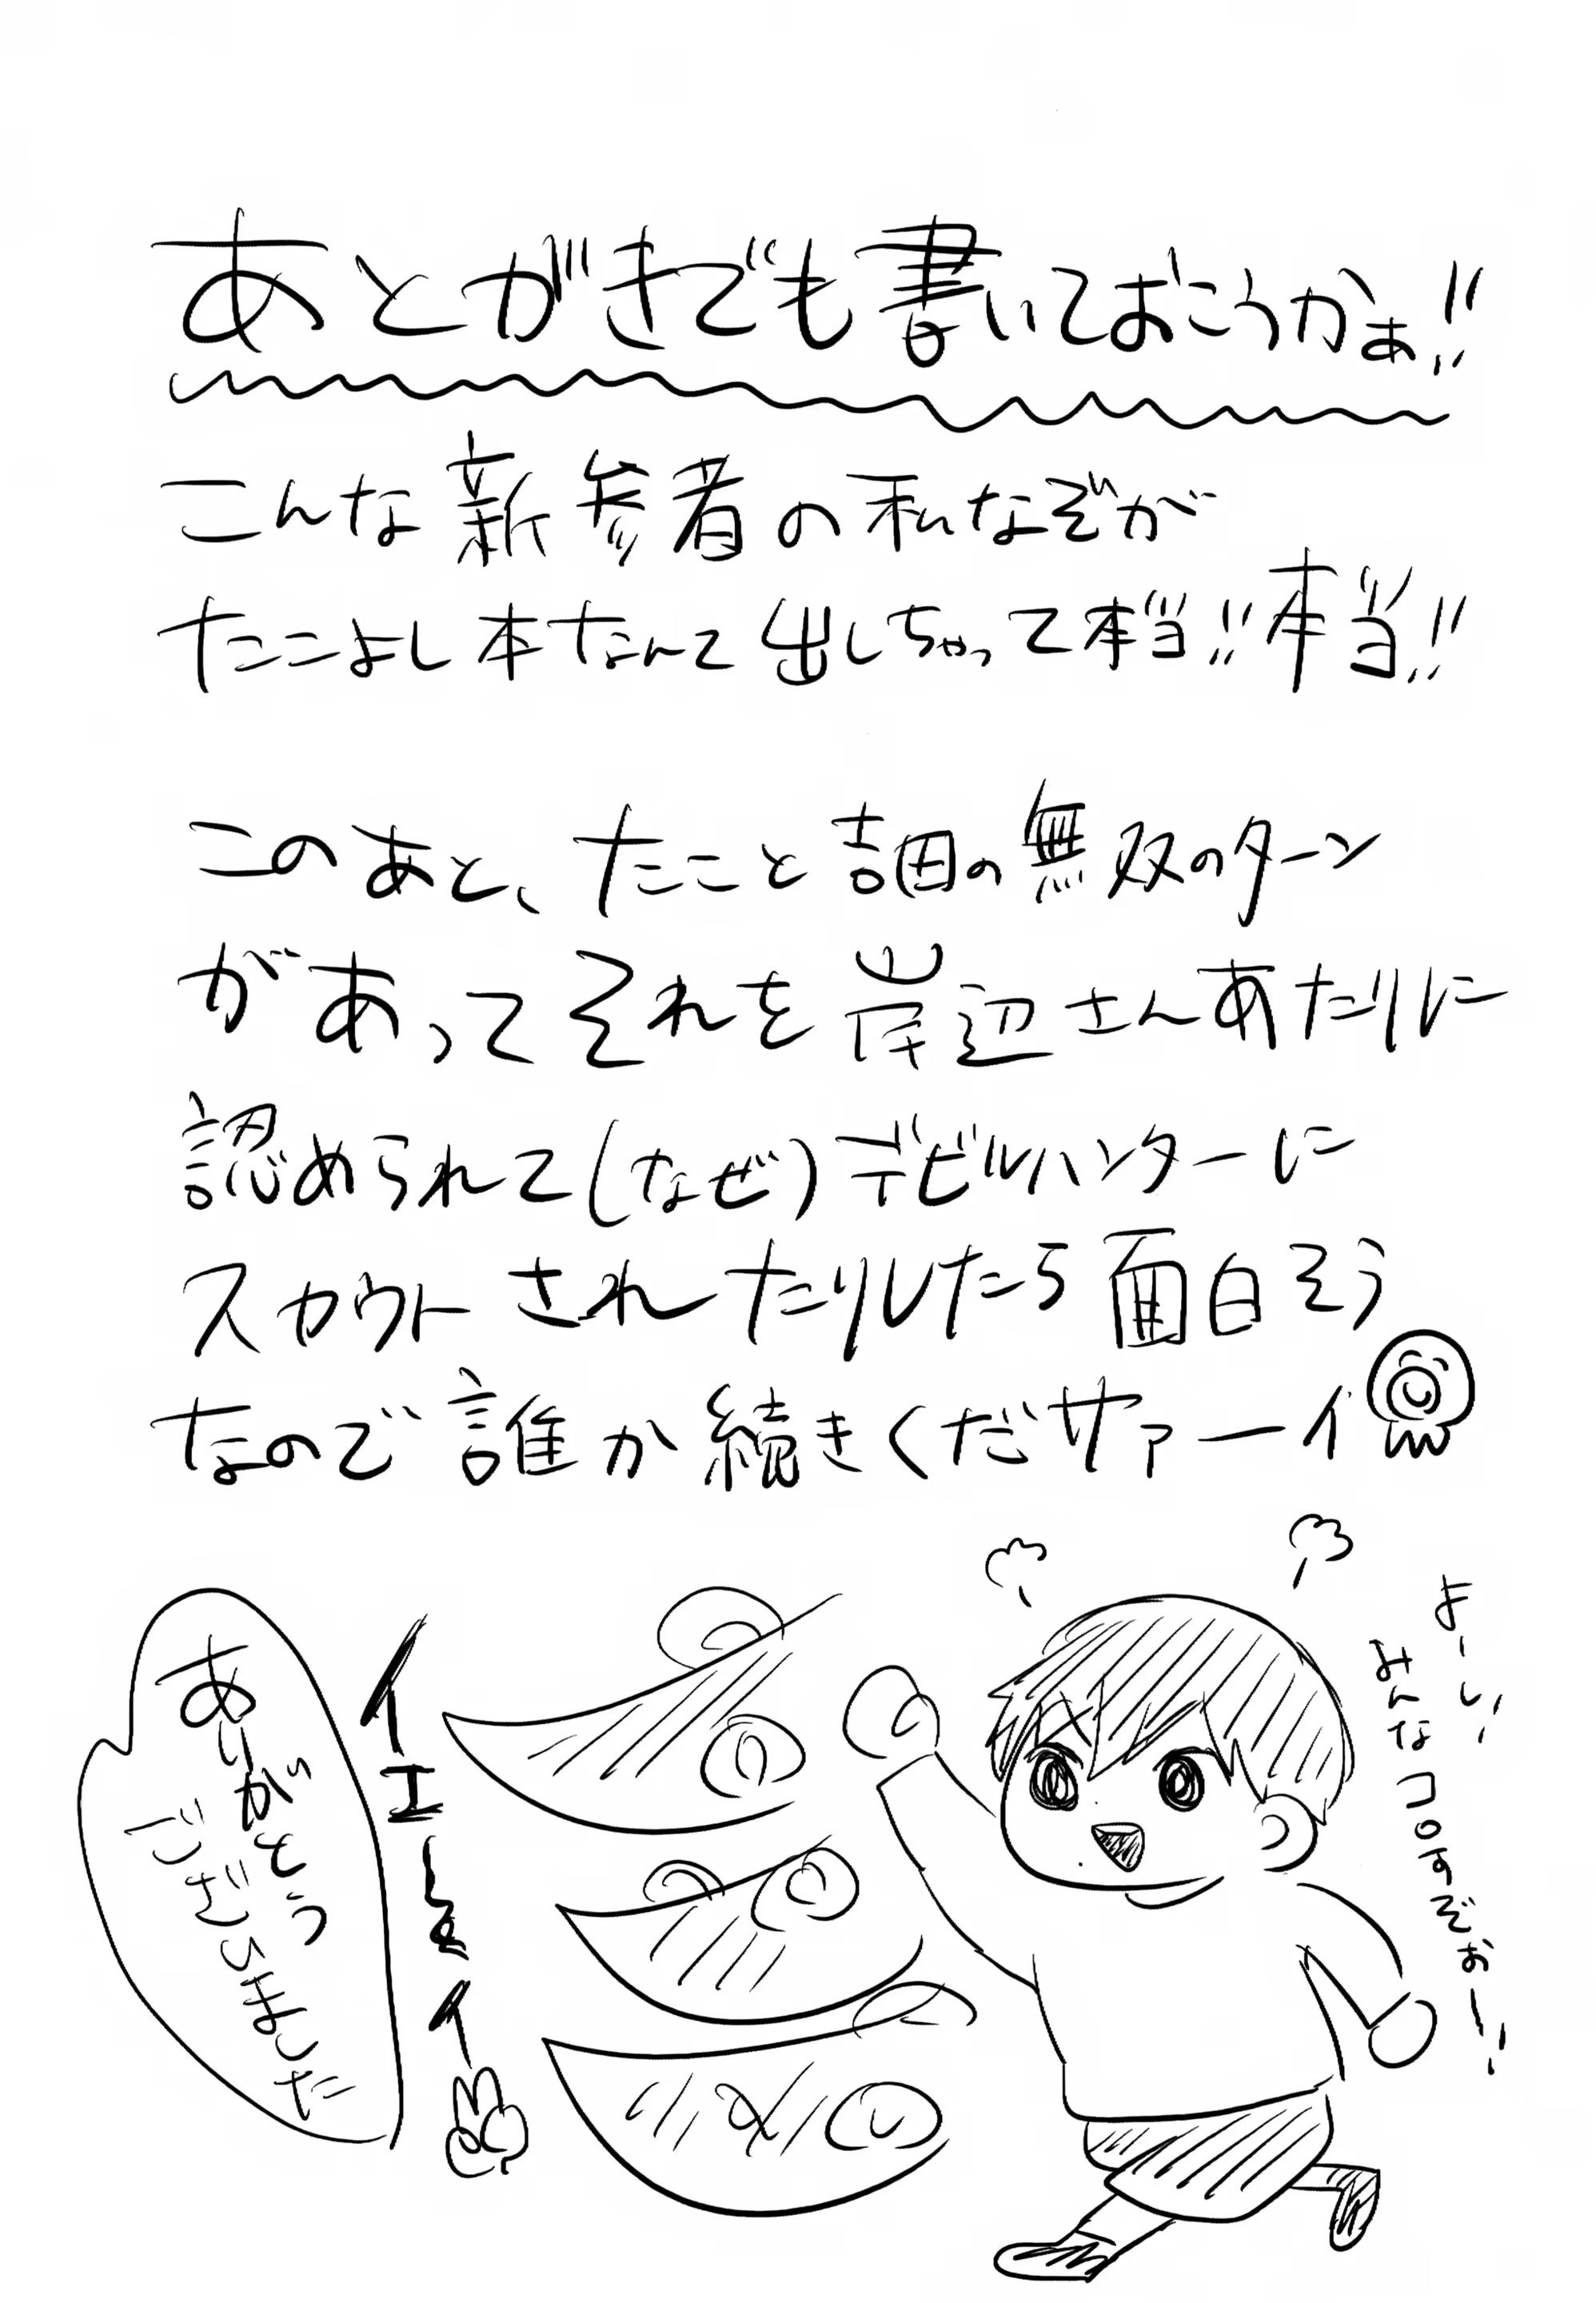 あとがきでも書いておこうかぁ!!
こんな新参者の私なぞが
たこよし本なんて出しちゃって本当!!本当!!
このあと、たこと吉田の無双のターン
があってそれを岸辺さんあたりに
認められて(なぜ)デビルハンターに
スカウトされたりしたら面白そう
なので誰か続きくだサァーイ
よーし、
みんなコロすぞぉー!!
イエーイ
ありがとう
ございました